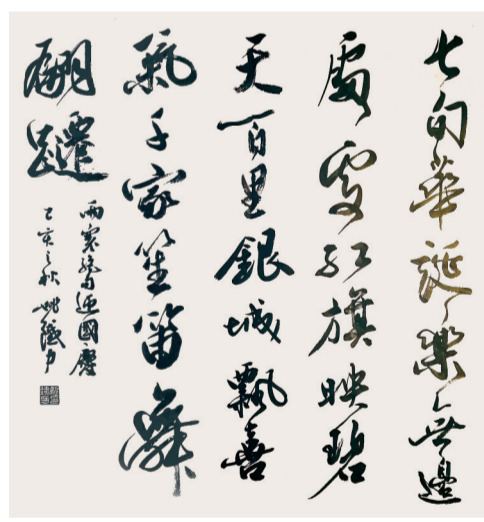 七旬華誕樂無邊
處處紅旗映碧
天百里銀城飄喜
氣千家笙笛舞
翩躚
絕句迎國慶
己亥之秋